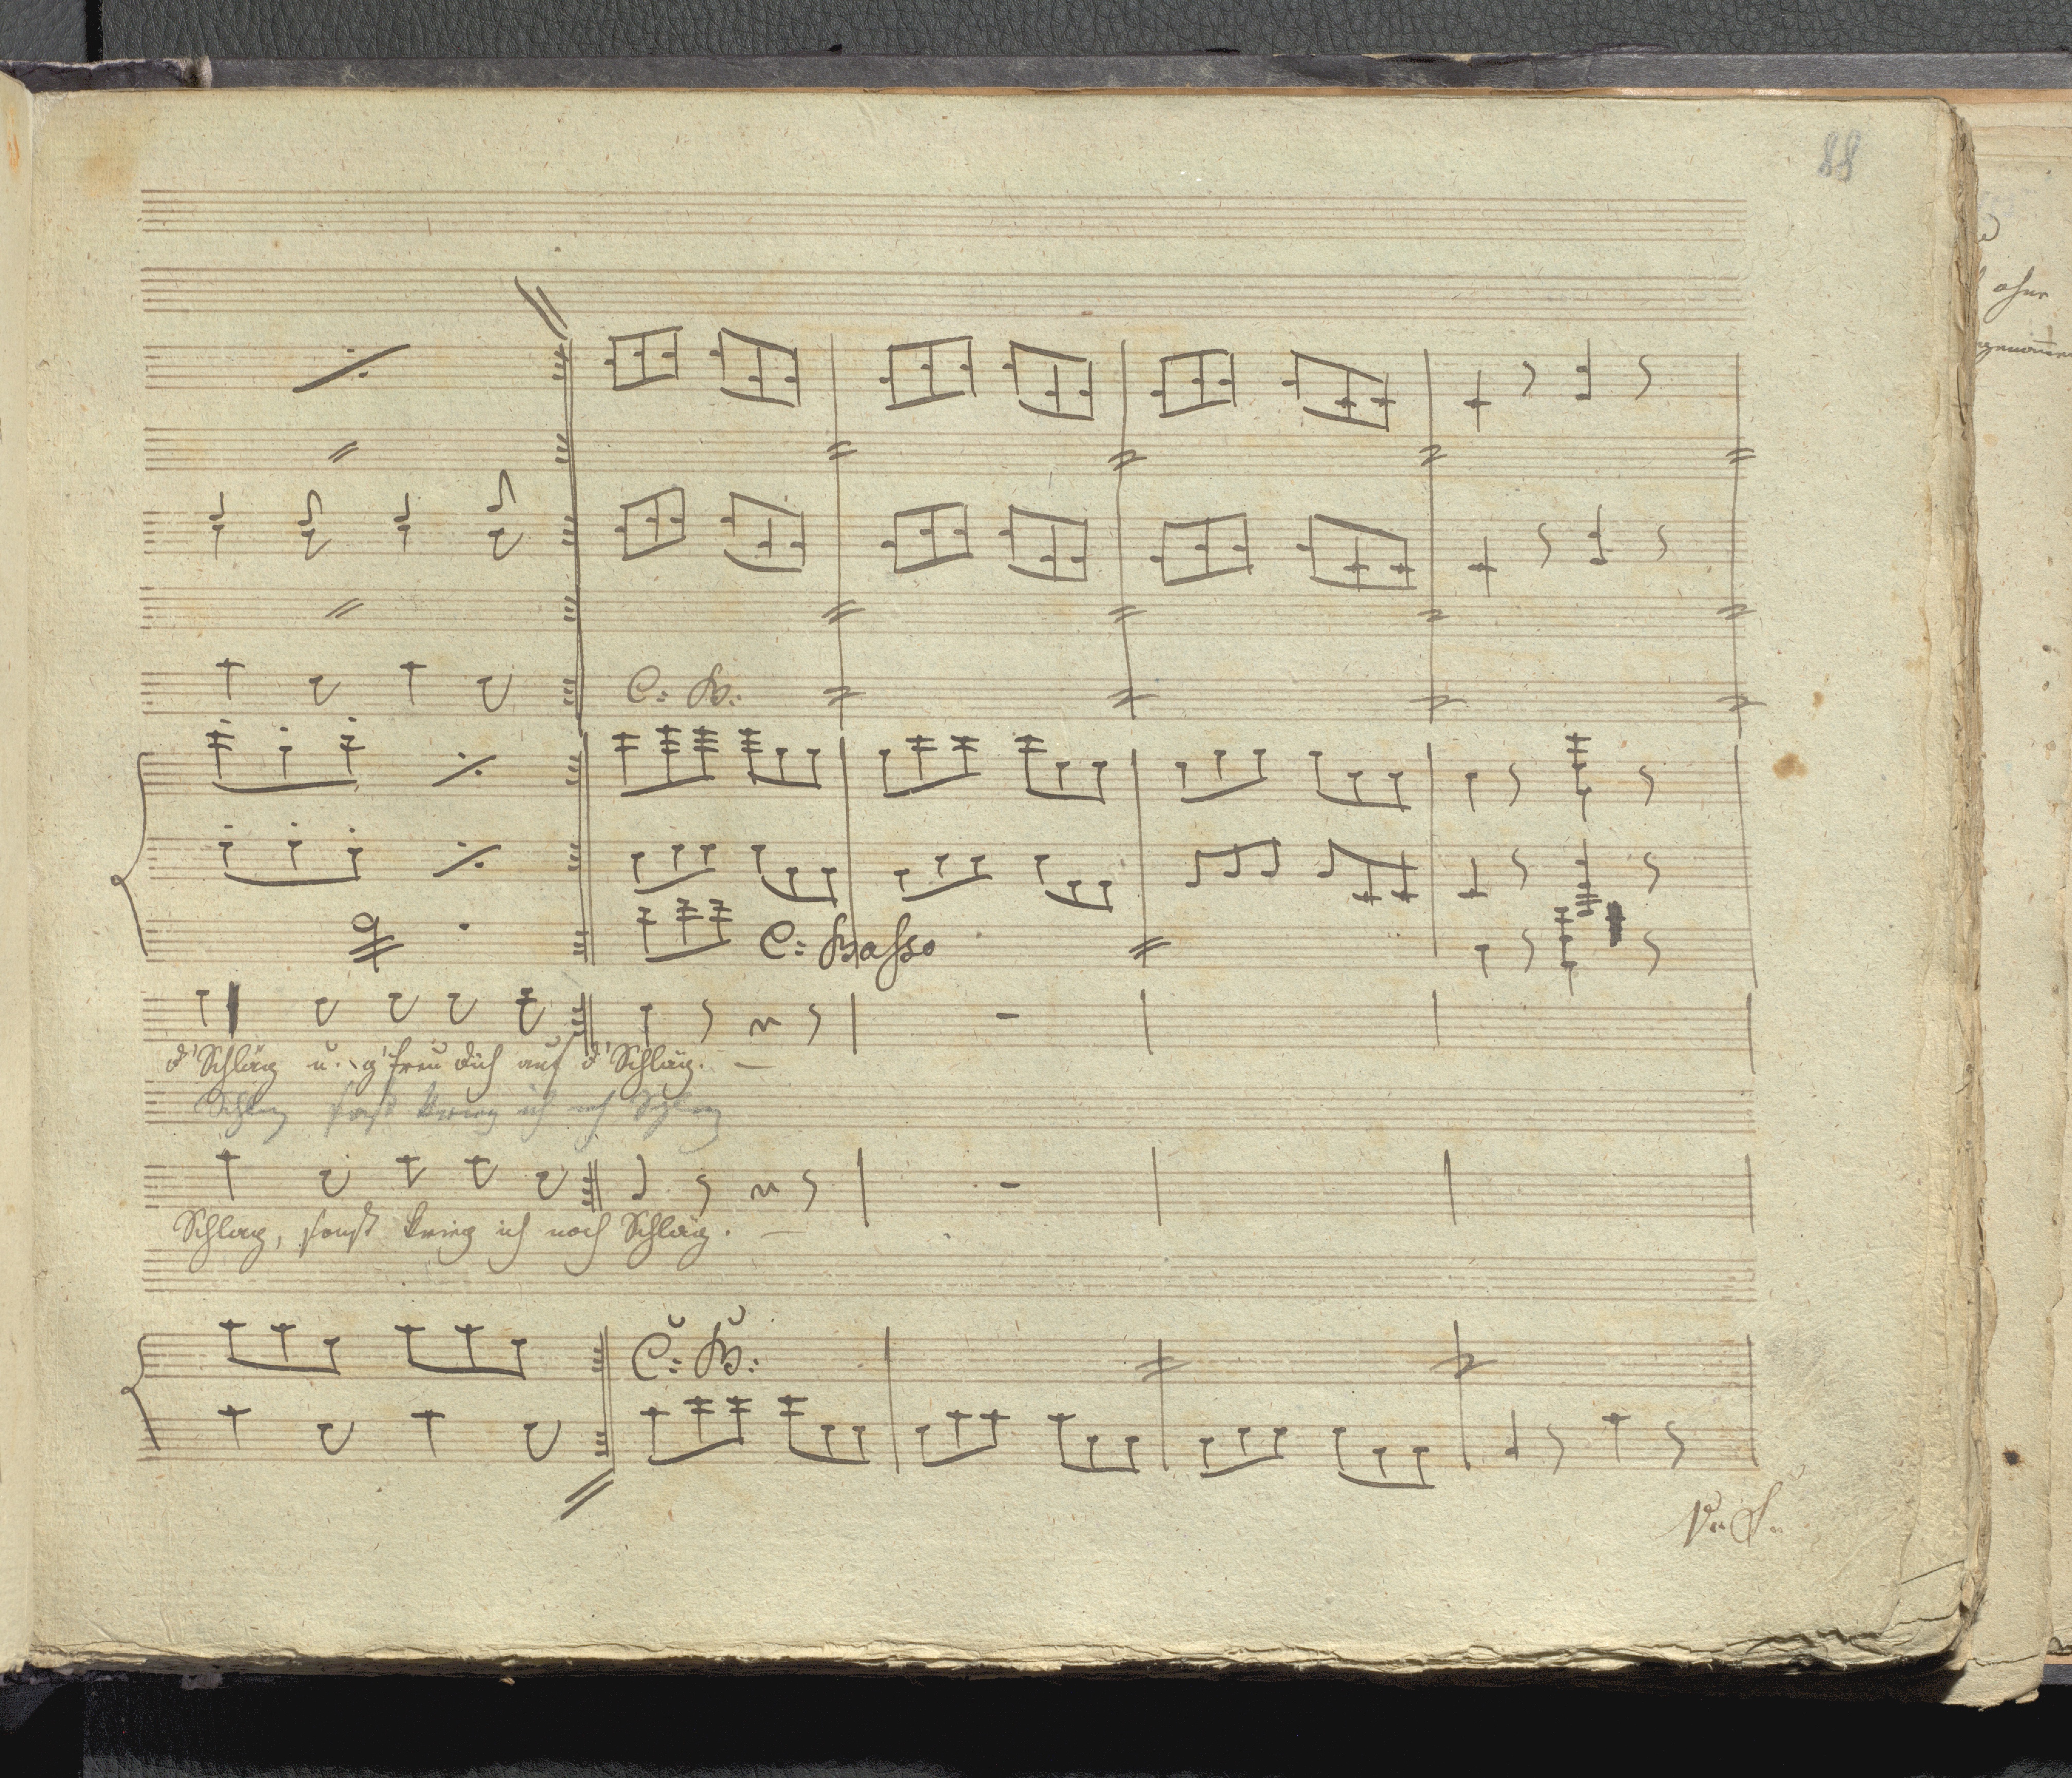 88
C: B:
C: Basso
d'Schläg u. g'freu dich auf d'Schläg. —
Schlag sonst krieg ich noch Schläg
Schlag, sonst krieg ich noch Schläg. —
C: B:
V: S: